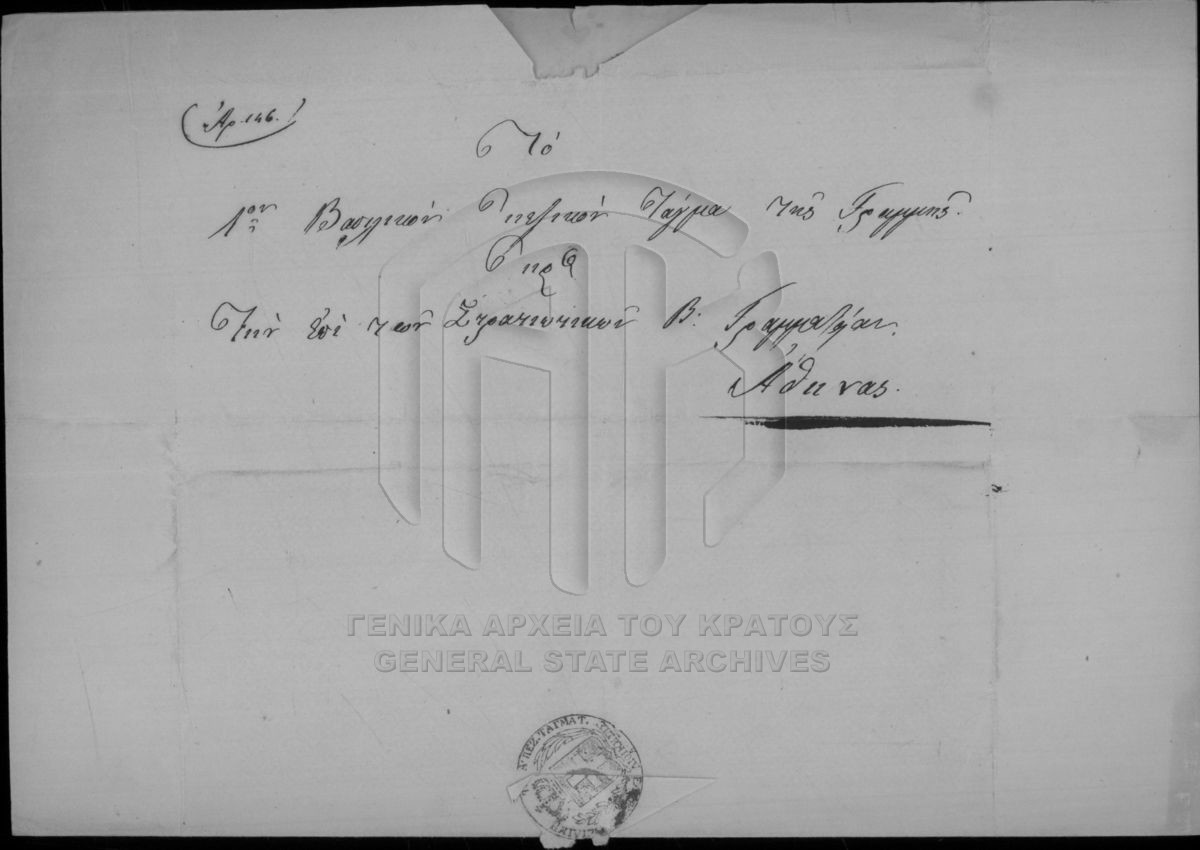 Αρ. 146.
Τὸ
1ον Βασιλικὸν Πεζικὸν Τάγμα τῆς Γραμμῆς.
Πρὸς
Τὴν ἐπὶ τῶν Στρατιωτικῶν Β: Γραμματείαν.
Ἀθήνας.
ΓΕΝΙΚΑ ΑΡΧΕΙΑ ΤΟΥ ΚΡΑΤΟΥΣ
GENERAL STATE ARCHIVES
ΠΕΖ. ΤΑΓΜΑΤ.